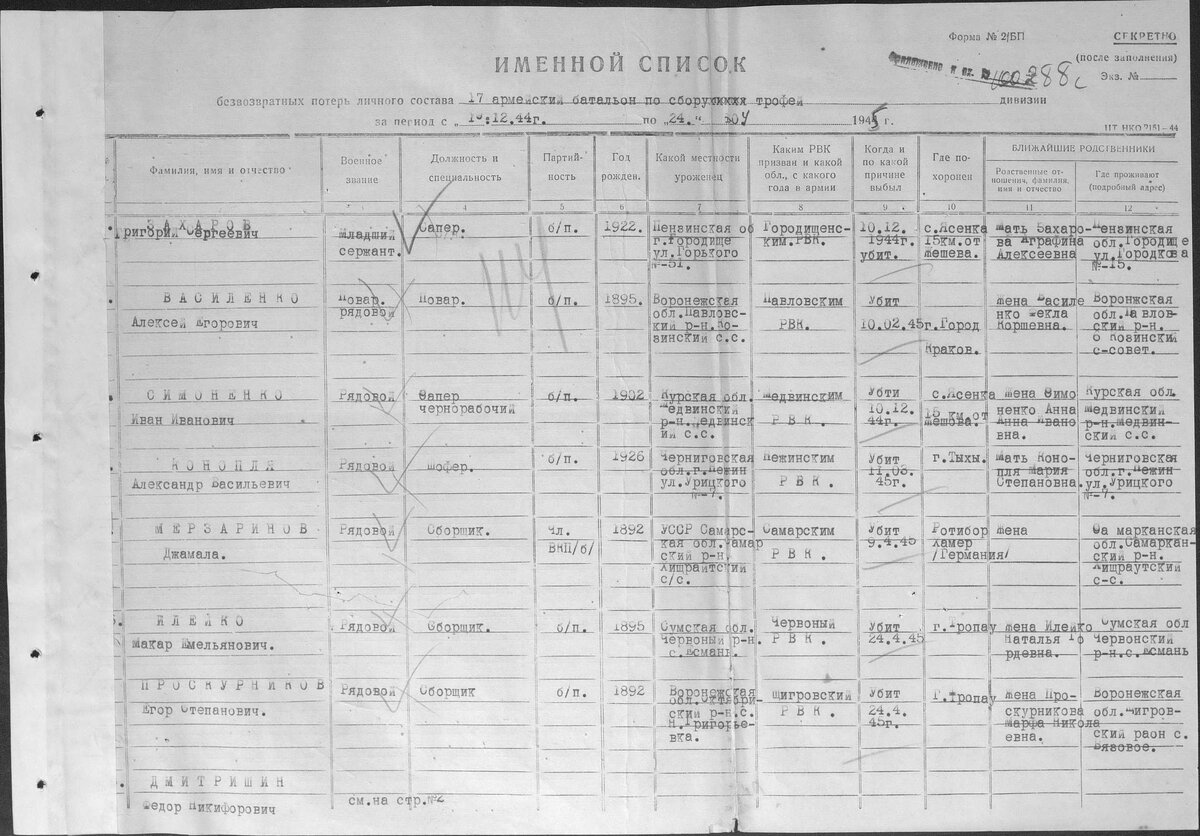 Форма № 2/БП
СЕКРЕТНО
(после заполнения)
Экз. №
288с
ИМЕННОЙ СПИСОК
безвозвратных потерь личного состава 17 армейский батальон по сбору трофей дивизии
за период с „ 10.12.44г. по „24.“ 04 1945 г.
ЦТ НКО 2151–44
Фамилия, имя и отчество
Военное звание
Должность и специальность
Партийность
Год рожден.
Какой местности уроженец
Каким РВК призван и какой обл., с какого года в армии
Когда и по какой причине выбыл
Где похоронен
БЛИЖАЙШИЕ РОДСТВЕННИКИ
Родственные отношения, фамилия, имя и отчество
Где проживают (подробный адрес)
4 5 6 7 8 9 10 11 12
ЗАХАРОВ Сапер. б/п. 1922. Пензинская об Городищенс- 10.12. с.Ясенка Мать Захаро- Пензинская
Григорий Сергеевич Младший г.Городище ким.РВК. 1944г. 15км.от ва Аграфина обл.Городище
сержант. ул.Горького убит. Алексеевна ул.Городкова
№-51. №-15.
104
ВАСИЛЕНКО Повар. Повар. б/п. 1895. Воронежская Павловским Убит Жена Василе Воронжская
Алексей Егорович рядовой обл.Павловс- РВК. 10.02.45г. Город нко Фекла обл.Павлов-
кий р-н. Коршевна. ский р-н.
зинский с.с. Краков. с-совет.
СИМОНЕНКО Рядовой Сапер б/п. 1902 Курская обл. Медвинским Убти с.Ясенка Жена Симо Курская обл.
Иван Иванович чернорабочий Медвинский РВК. 10.12. 15 км.от ненко Анна Медвинский
р-н.Медвинск 44г. Анна Ивано р-н.Медвин-
ий с.с. вна. ский с.с.
КОНОПЛЯ Рядовой Шофер. б/п. 1926 Черниговская Нежинским Убит г.Тыхы. Мать Коно- Черниговская
Александр Васильевич обл.г.Нежин РВК. 45г. пля Мария обл.г.Нежин
ул.Урицкого Степановна. ул.Урицкого
№-7. №-7.
МЕРЗАРИНОВ Рядовой Сборщик. Чл. 1892 УССР Самарс- Самарским Убит Ротибор Жена Са марканская
Джамала. ВКП/б/ кая обл.Самар РВК. 9.4.45 Хамер обл.Самаркан-
ский р-н. /Германия/ ский р-н.
Хишраитский Хишраутский
с/с. с-с.
ИЛЕЙКО Рядовой Сборщик. б/п. 1895 Сумская обл. Червоный Убит г.Тропау Жена Илейко Сумская обл
Макар Емельянович. Червоный р-н. РВК. 24.4.45 Наталья Го Червонский
с.Есмань. рдевна. р-н.с.Есмань
ПРОСКУРНИКОВ Рядовой Сборщик б/п. 1892 Воронежская Щигровский Убит г.Тропау Жена Про- Воронежская
Егор Степанович. обл.Октябри- РВК. 24.4. скурникова обл.Щигров-
ский р-н.с. 45г. Марфа Никола ский раон с.
Н.Григорье- евна. Вязовое.
вка.
ДМИТРИШИН
Федор Никифорович см.на стр.№2